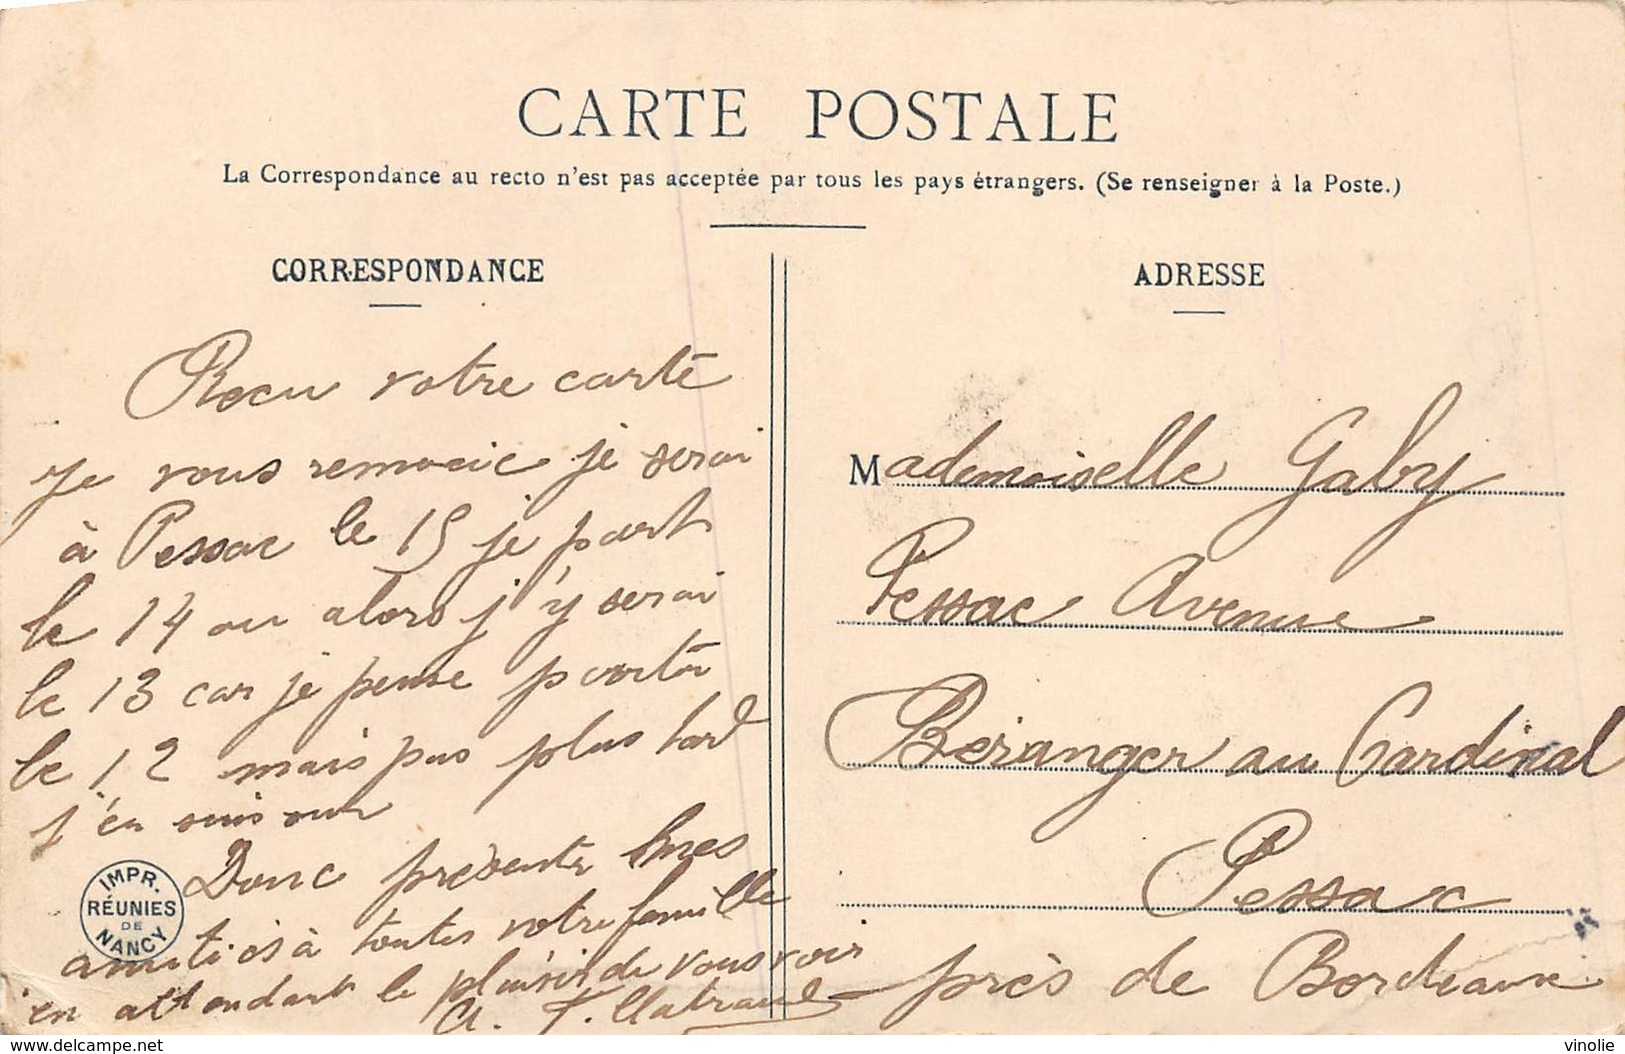 CARTE POSTALE
La Correspondance au recto n'est pas acceptée par tous les pays étrangers. (Se renseigner à la Poste.)
CORRESPONDANCE
Recu votre carte
je vous remercie je serai
à Pessac le 15 je part
le 14 ou alors j'y serai
le 13 car je pense partir
le 12 mais pas plus tard
j'en suis sur
Donc présenter mes
amitiés à toutes votre famille
en attendant le plaisir de vous voir
IMPR.
RÉUNIES
DE
NANCY
ADRESSE
Mademoiselle Gaby
Pessac Avenue
Béranger au Cardinal
Pessac
près de Bordeaux
www.delcampe.net
vinolie